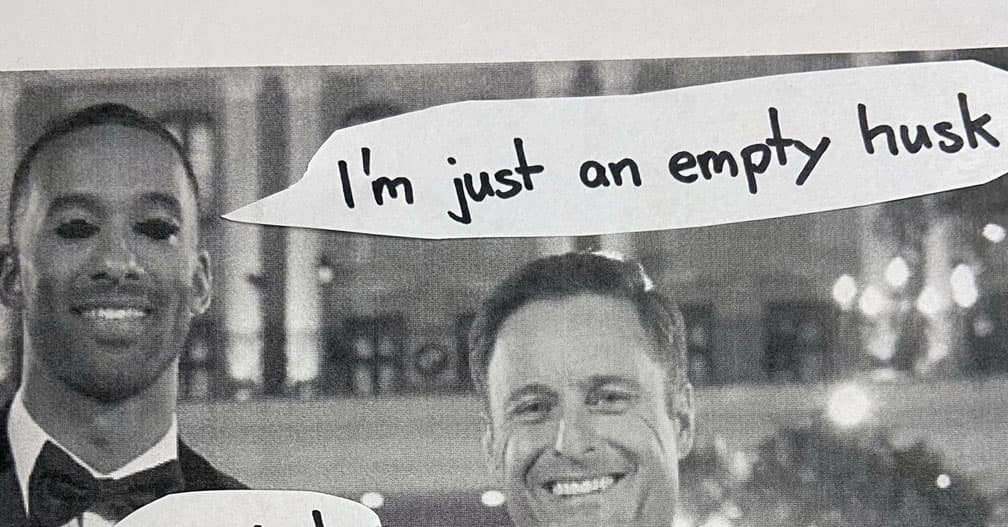 I'm just an empty husk